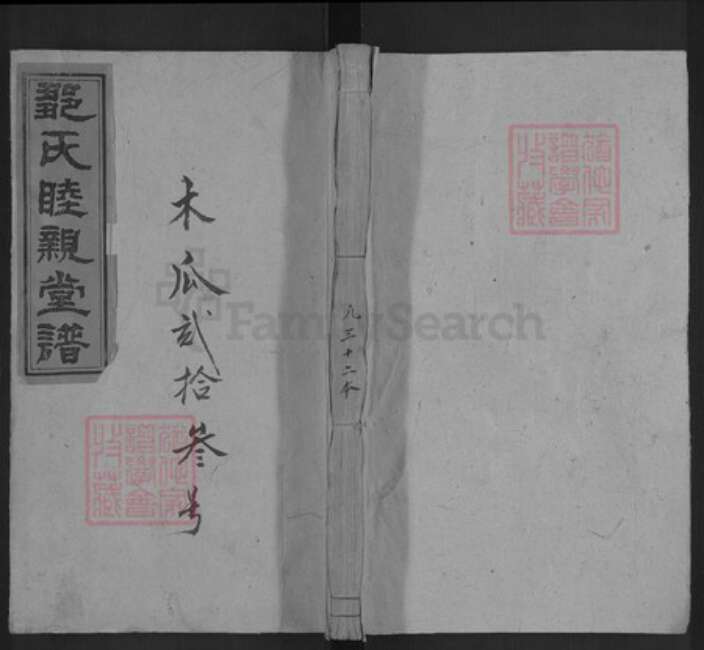 鄒氏睦親堂譜
木瓜弍拾叄号
凡三十二本
FamilySearch